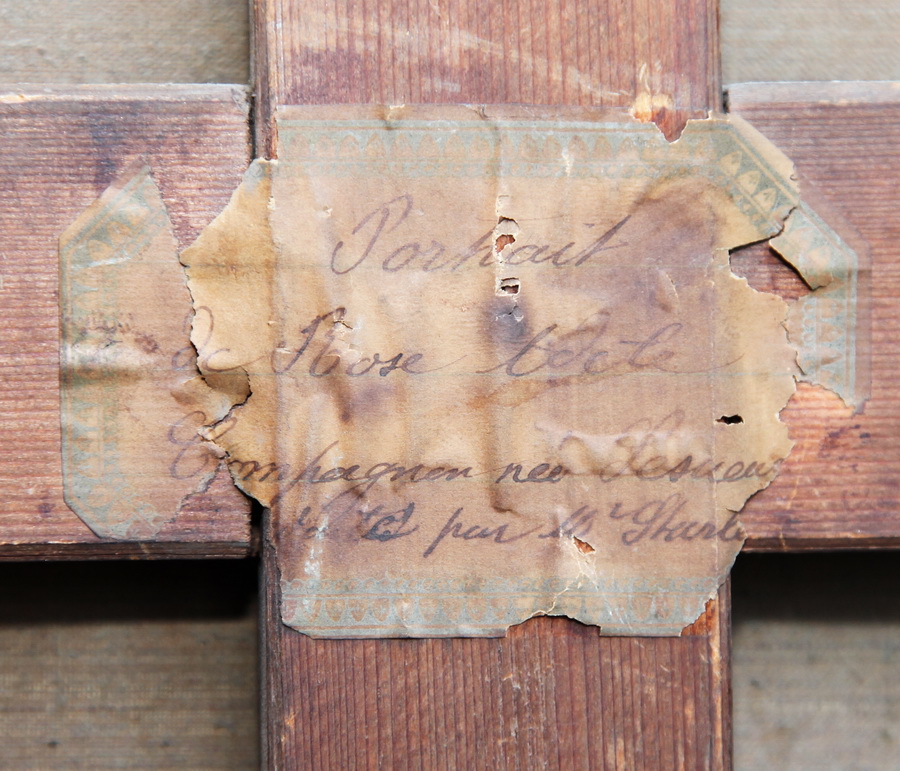 Portrait
de Rose Adèle
Compagnon née Lesueur
par Mr